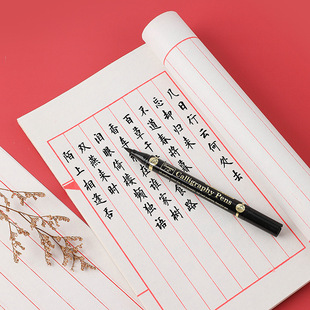 几日行云何处去
忘却归来
不道春将暮
百草千花寒食路
香车系在谁家树
泪眼倚楼频独语
双燕来时
陌上相逢否
Calligraphy Pens